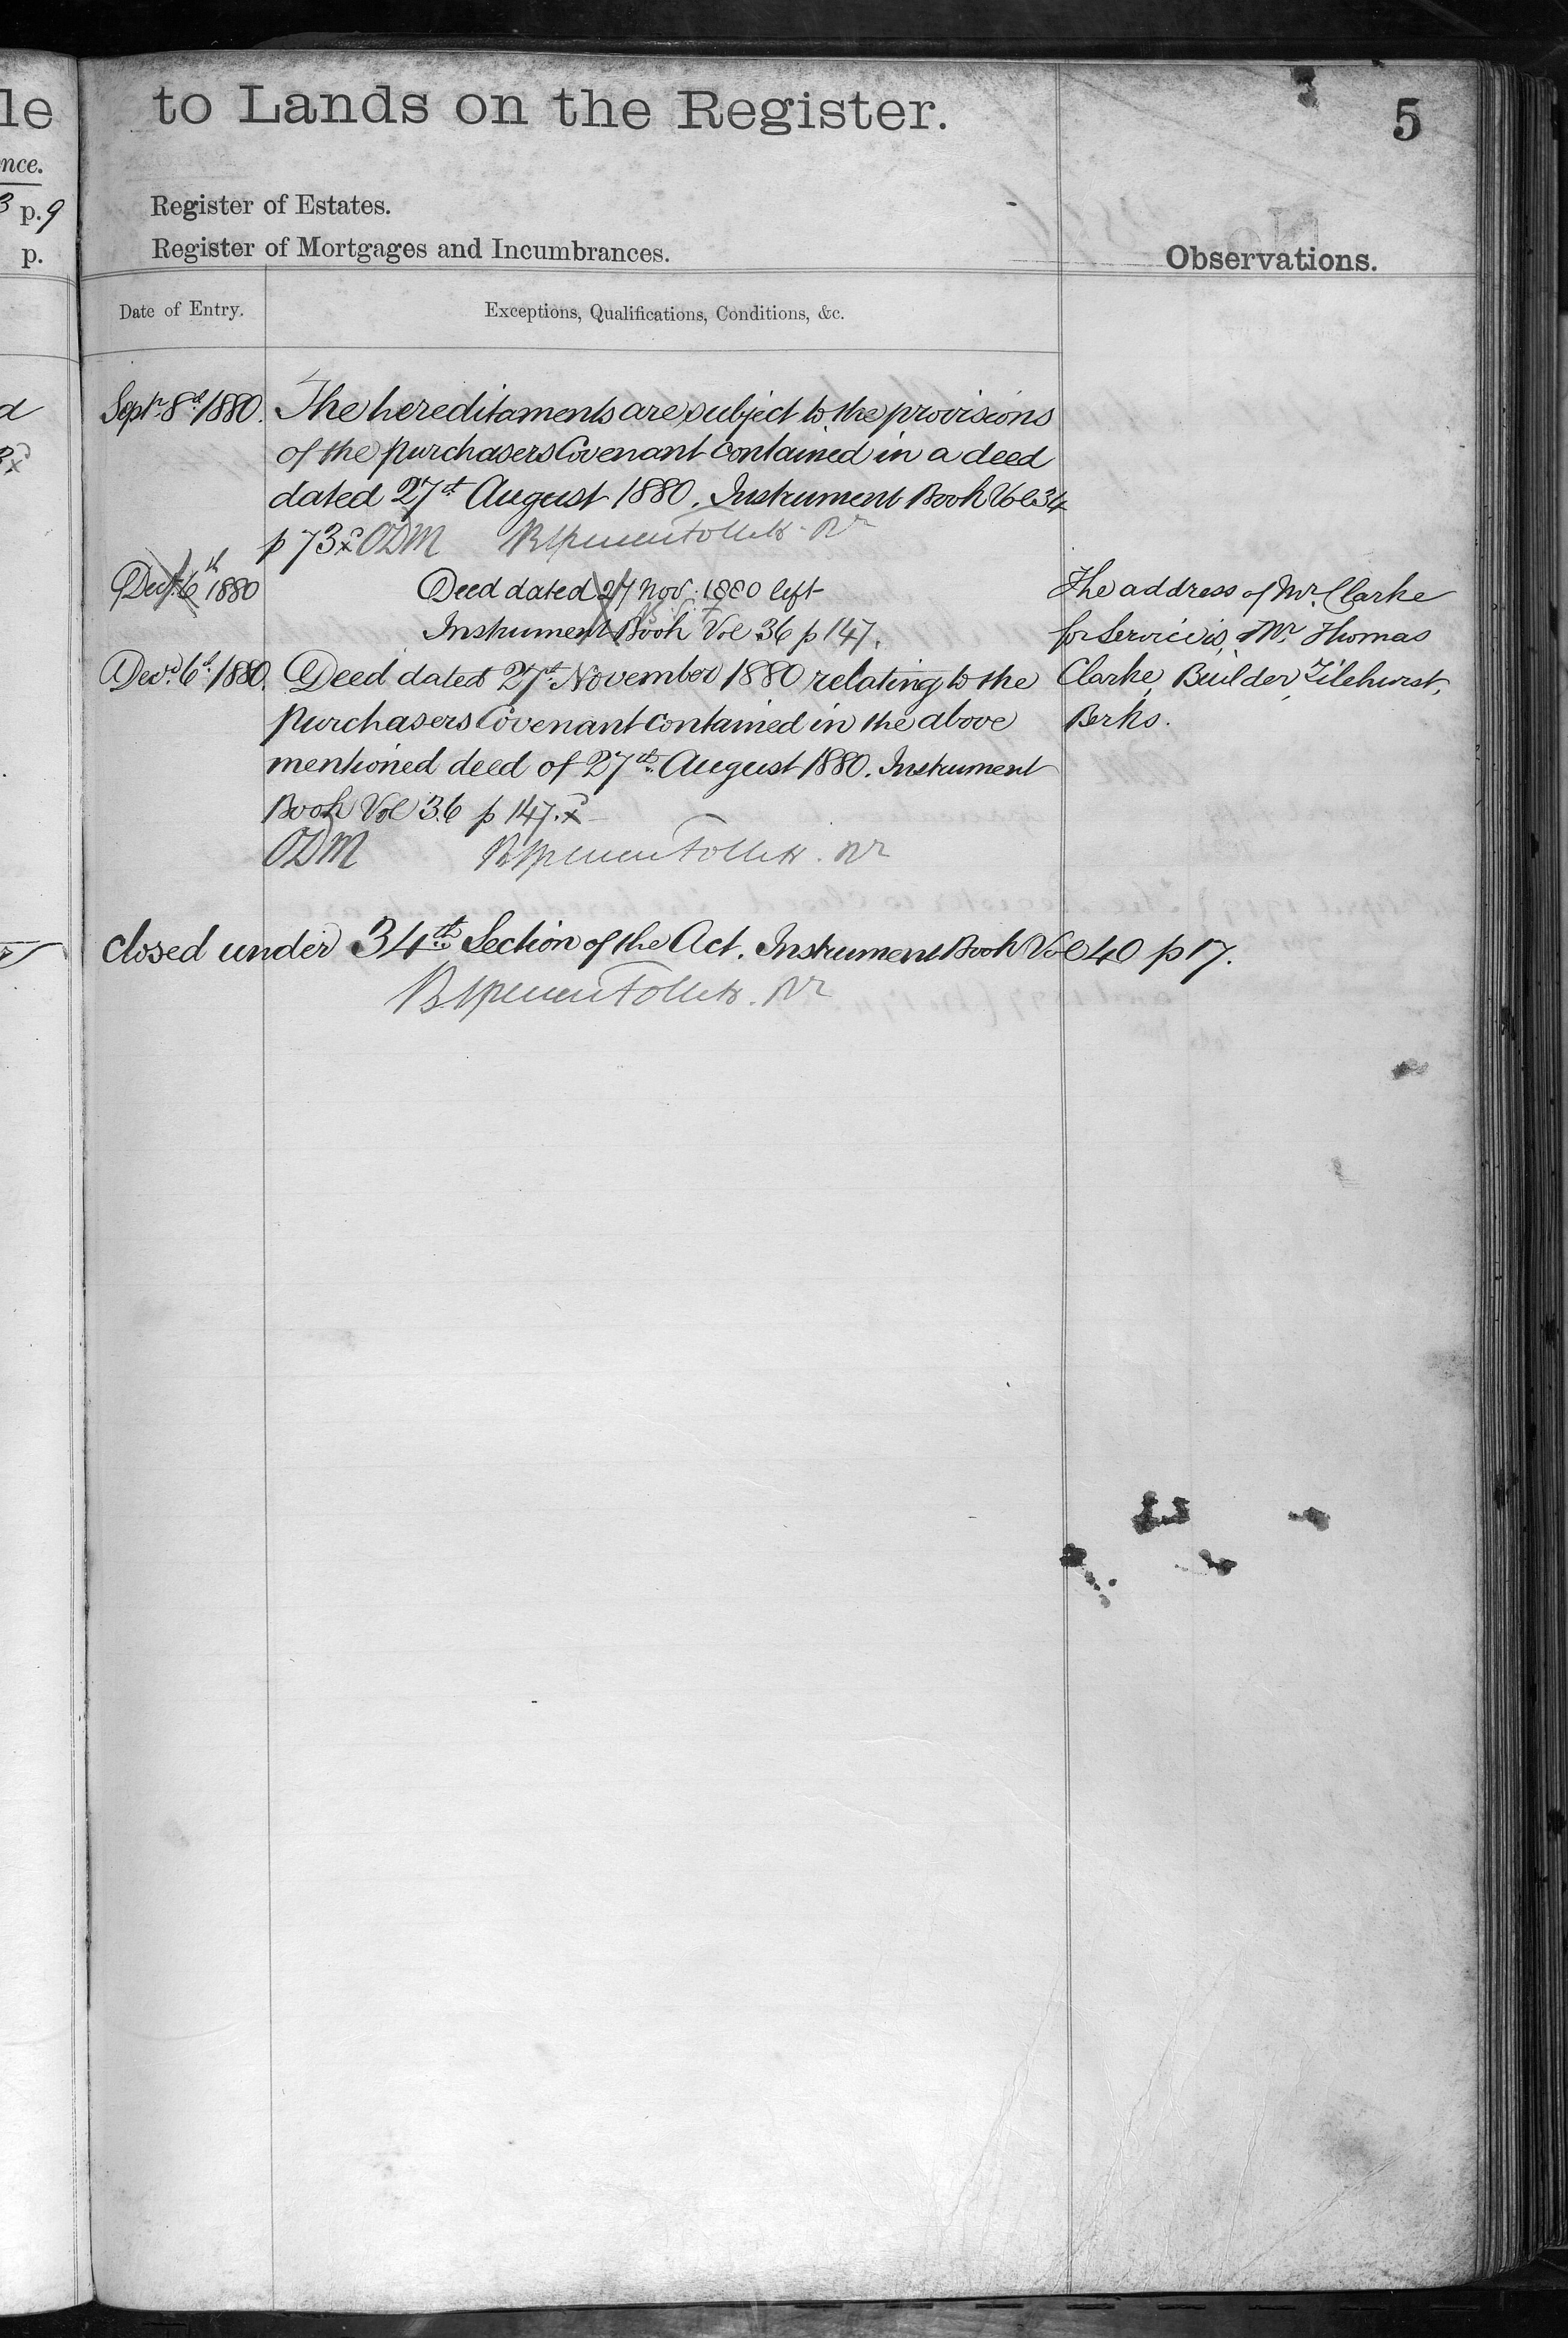 le
to Lands on the Register.
5
nce.
p. 9
Register of Estates.
p.
Register of Mortgages and Incumbrances.
Observations.
Date of Entry.
Exceptions, Qualifications, Conditions, &c.
Septr. 8th 1880. The hereditaments are subject to the provisions
of the purchasers Covenant contained in a deed
dated 27th August 1880. Instrument Book Vol 34
p 73 ODM B S Spencer Follett Rr
Decr. 6th 1880 Deed dated 27 Nov. 1880 left
Instrument Book Vol 36 p 147.
Decr. 6th 1880. Deed dated 27th November 1880 relating to the
purchasers Covenant contained in the above
mentioned deed of 27th August 1880. Instrument
Book Vol 36 p 147.
ODM Follett. Rr
The address of Mr. Clarke
for Service is, Mr. Thomas
Clarke, Builder, Tilehurst,
Berks.
Closed under 34th Section of the Act. Instrument Book Vol 40 p 17.
Follett. Rr